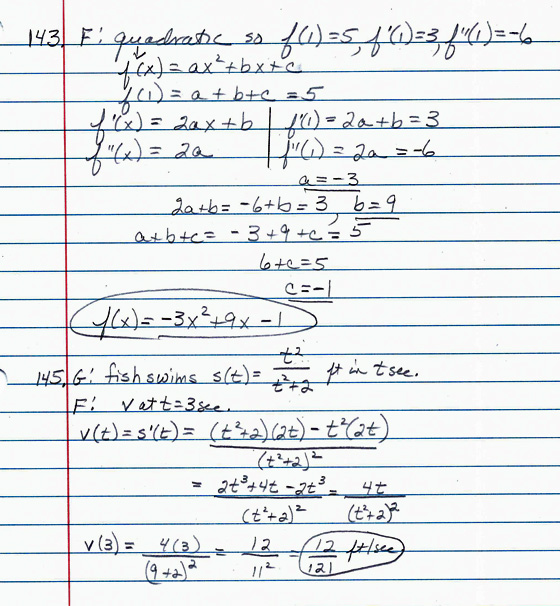 143. F: quadratic so f(1)=5, f'(1)=3, f''(1)=-6
f(x) = ax²+bx+c
f(1) = a+b+c = 5
f'(x) = 2ax+b | f'(1) = 2a+b = 3
f''(x) = 2a | f''(1) = 2a = -6
a = -3
2a+b = -6+b = 3, b=9
a+b+c = -3+9+c = 5
6+c=5
c=-1
f(x) = -3x²+9x-1
145. G: fish swims s(t) = t²/(t²+2) ft in t sec.
F: v at t=3 sec.
v(t) = s'(t) = ((t²+2)(2t) - t²(2t))/(t²+2)²
= (2t³+4t-2t³)/(t²+2)² = 4t/(t²+2)²
v(3) = 4(3)/(9+2)² = 12/11² = 12/121 ft/sec